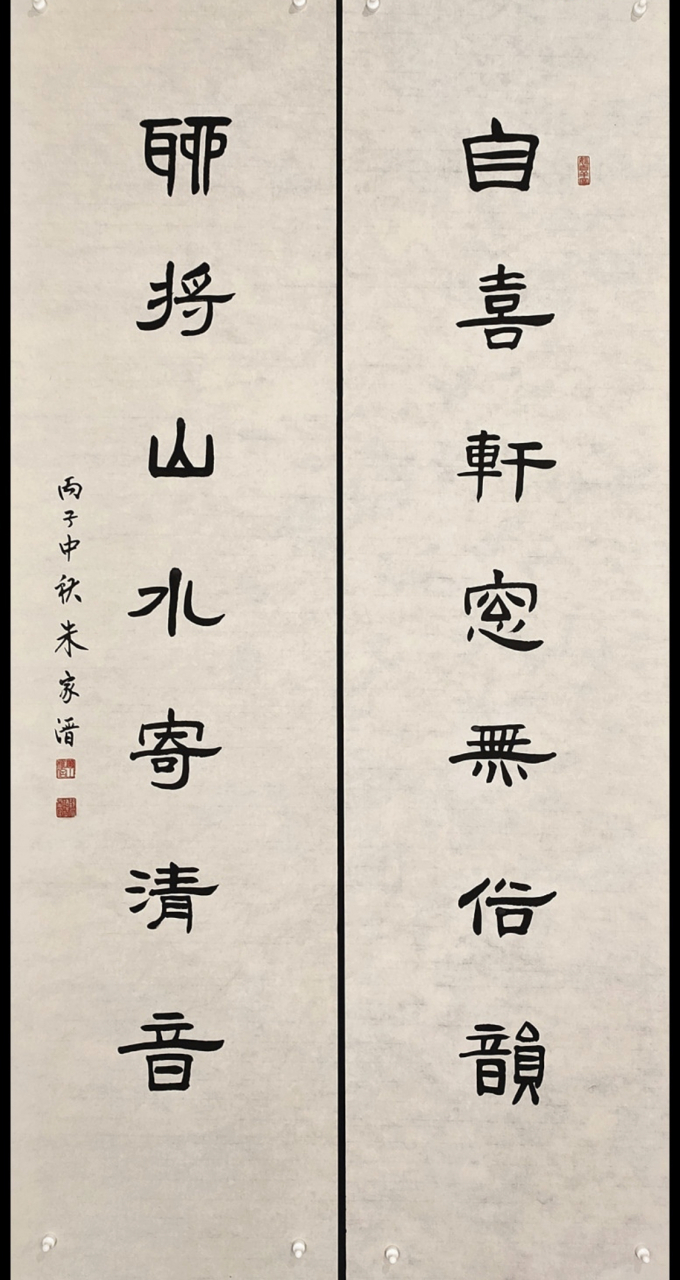 自喜軒窓無俗韻
聊将山水寄清音
丙子中秋朱家溍